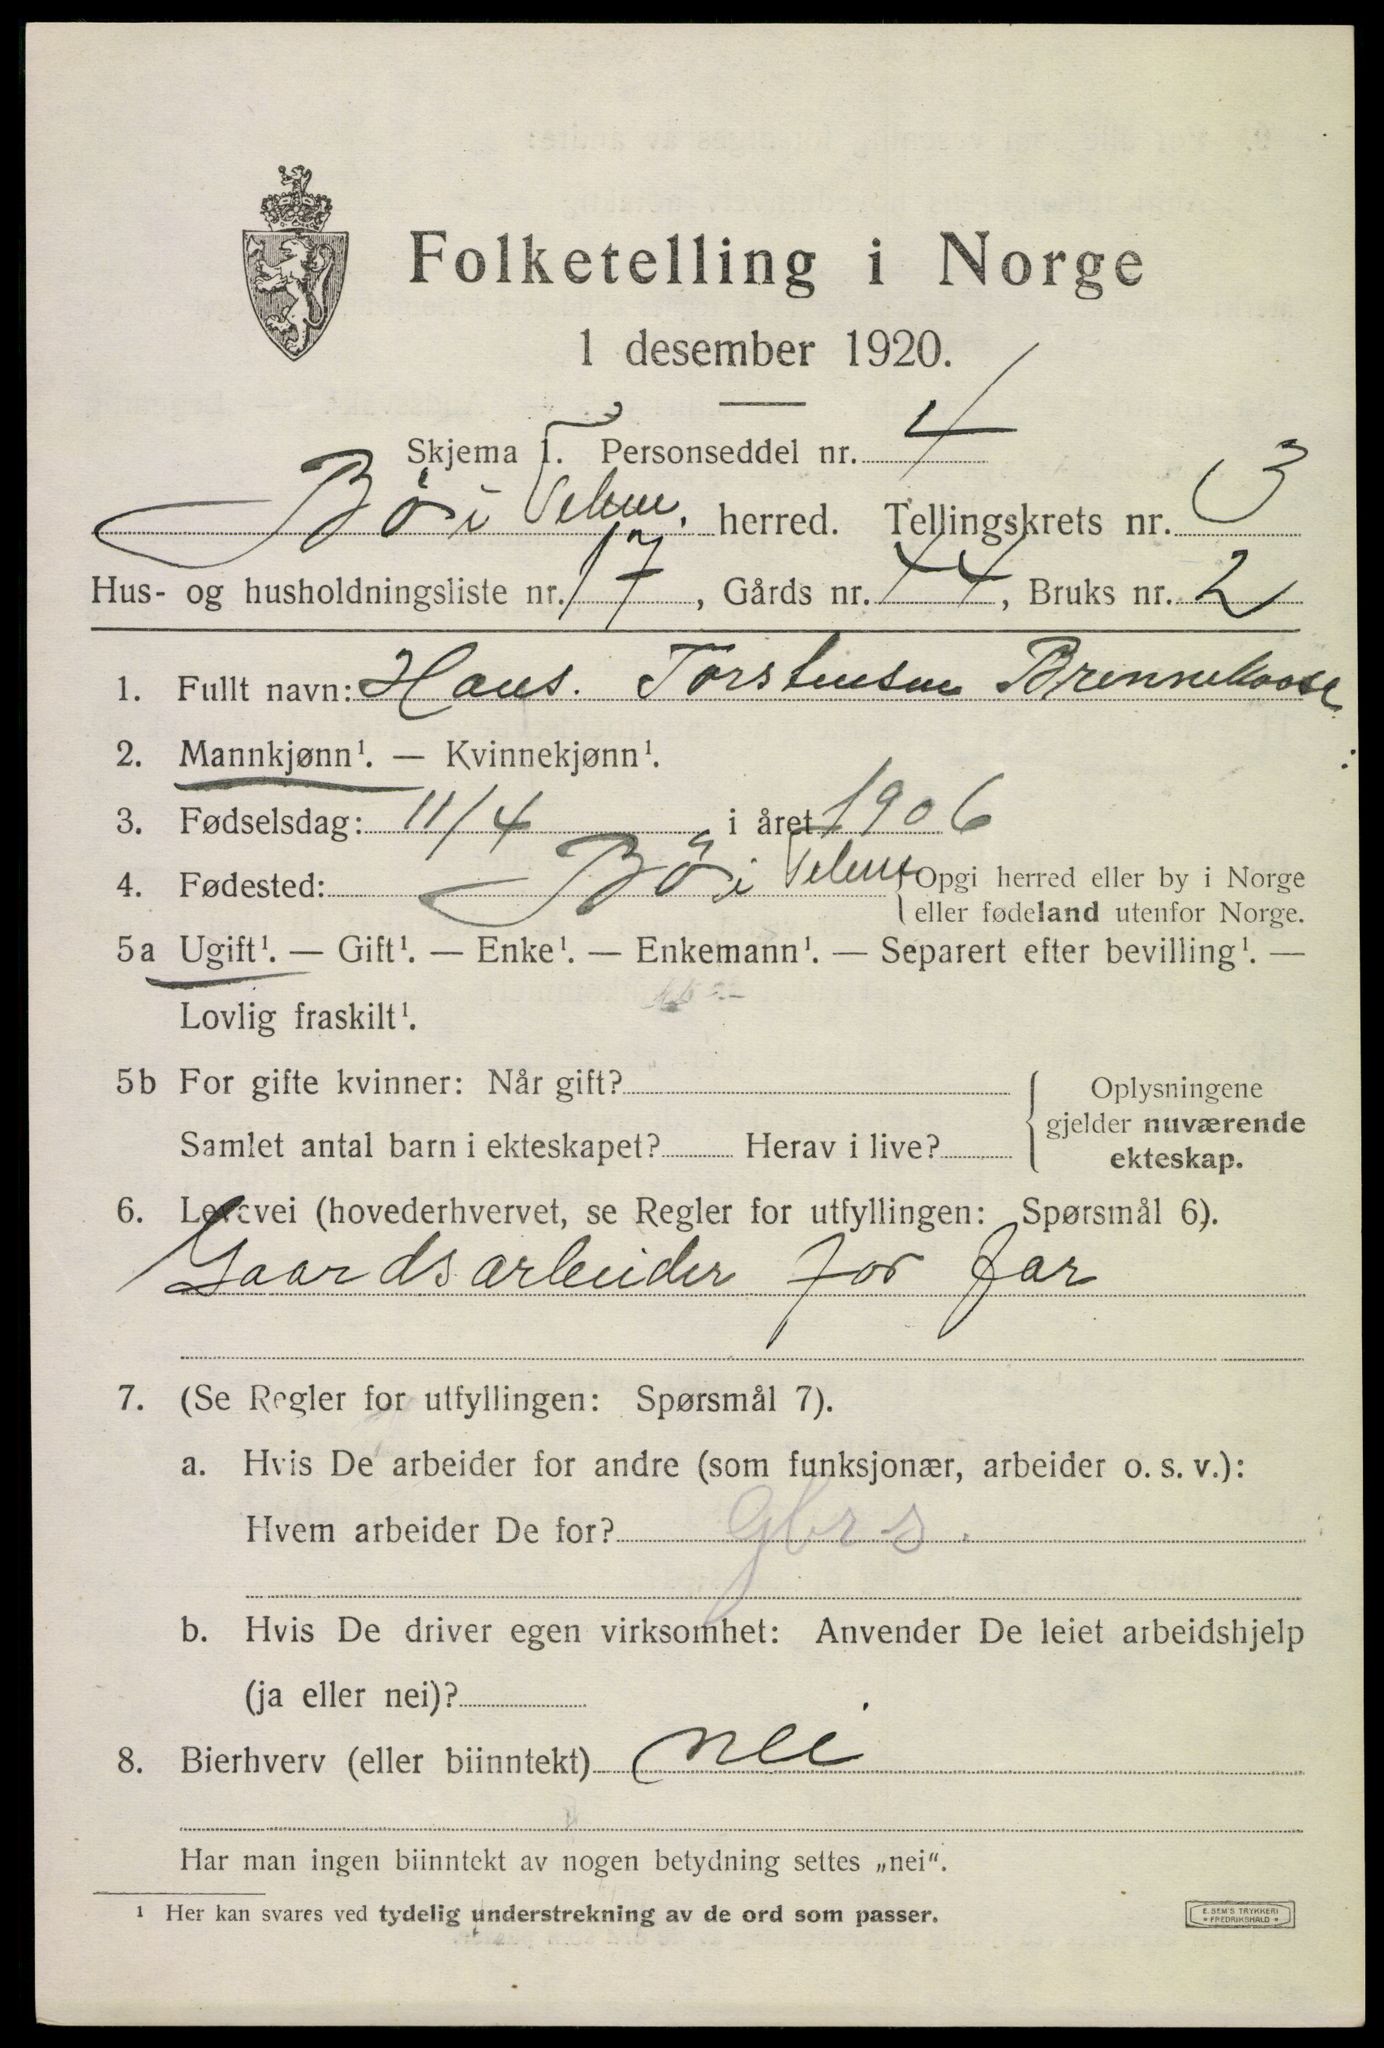 Folketelling i Norge
1 desember 1920.
Skjema 1. Personseddel nr. 4
Bø i Telem. herred. Tellingskrets nr. 3
Hus- og husholdningsliste nr. 17, Gårds nr. 44, Bruks nr. 2
1. Fullt navn: Hans. Torstensen
2. Mannkjønn¹. — Kvinnekjønn¹.
3. Fødselsdag: 11/4 i året 1906
4. Fødested: Bø i Telem { Opgi herred eller by i Norge
eller fødeland utenfor Norge.
5a Ugift¹. — Gift¹. — Enke¹. — Enkemann¹. — Separert efter bevilling¹. —
Lovlig fraskilt¹.
5b For gifte kvinner: Når gift?
Oplysningene
gjelder nuværende
ekteskap.
Samlet antal barn i ekteskapet? Herav i live?
6. Levevei (hovederhvervet, se Regler for utfyllingen: Spørsmål 6).
Gaardsarbeider for far
7. (Se Regler for utfyllingen: Spørsmål 7).
a. Hvis De arbeider for andre (som funksjonær, arbeider o. s. v.):
Hvem arbeider De for? Gbrs.
b. Hvis De driver egen virksomhet: Anvender De leiet arbeidshjelp
(ja eller nei)?
8. Bierhverv (eller biinntekt) nei
Har man ingen biinntekt av nogen betydning settes „nei“.
¹ Her kan svares ved tydelig understrekning av de ord som passer.
E. SEM'S TRYKKERI
* FREDRIKSHALD *